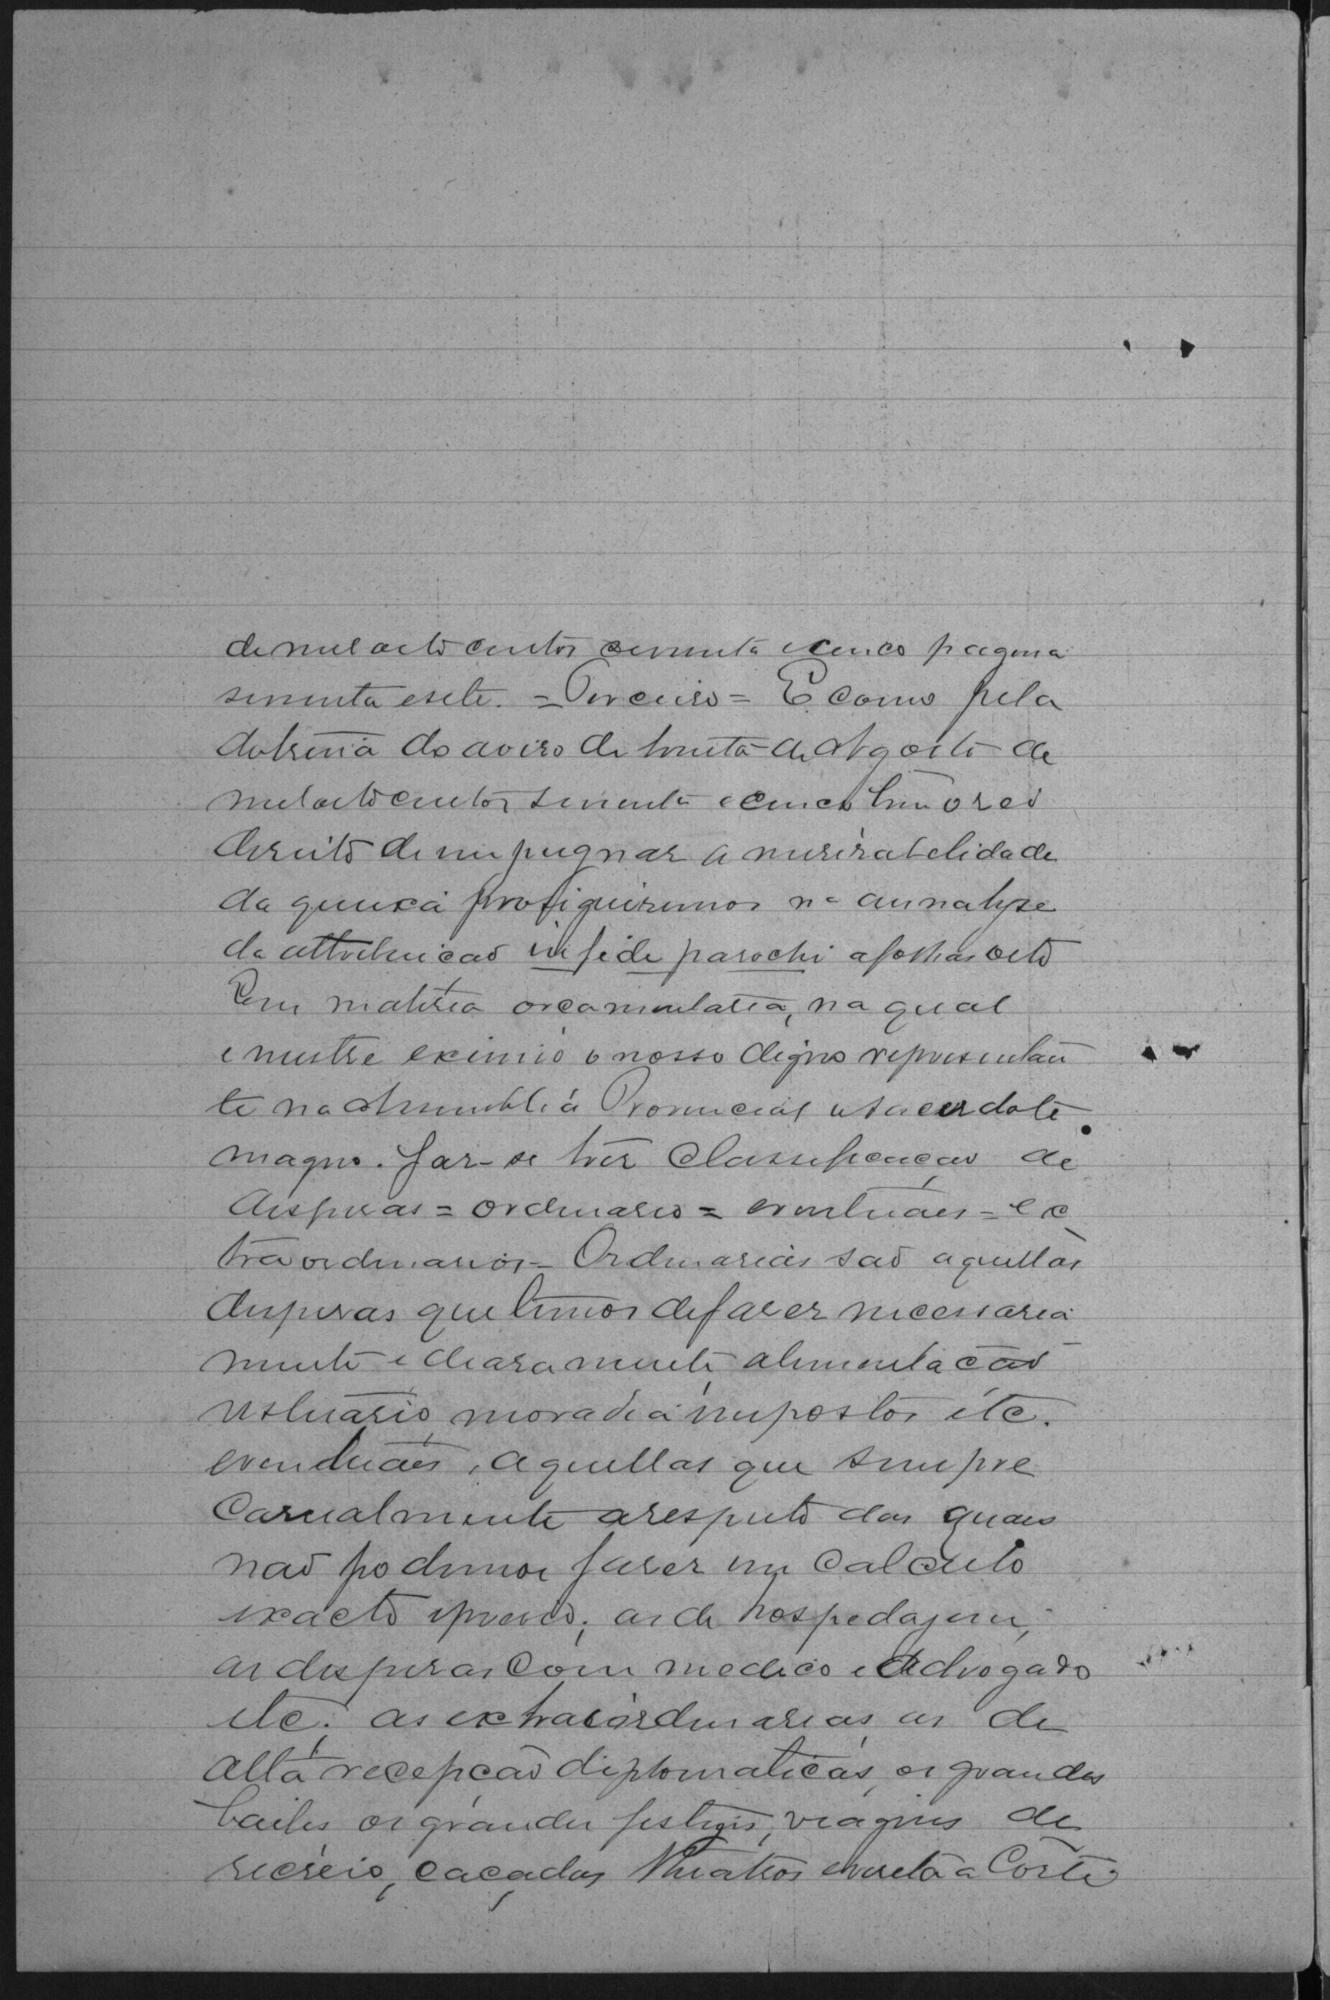 de mil oito centos secenta e cinco pagina
secenta e sete. = Terceiro = E como pela
dotrina do aviso de trinta de Agosto de
mil oito centos secenta e cinco tem o reo
direito de impugnar a miserabelidade
da queixa prosiguiremos na annalyse
da attribuicaõ in fide parochi a folhas oito
Em materia orcamentaria, na qual
e mestre eximio o nosso digno representan
te na Assembléa Provincial e sacerdote
magno. Faz-se trez classificaçaõ de
despezas = ordinario = eventuaes = ex
traordinarios = Ordinarias saõ aquellas
despezas que temos de fazer necessaria
mente e diaramente, alimentacaõ
vestuario, moradia impostos etc.
eventuaes, aquellas que sempre
casualmente a respeito das quaes
naõ podemos fazer um calculo
exacto e preciso; as de hospedajem,
as despezas com medico e Advogado
etc; as extraordinarias, as de
alta recepçaõ diplomaticas, os grandes
bailes os grandes festejos, viagens de
recreio, caçadas Theatros evereta a Corte